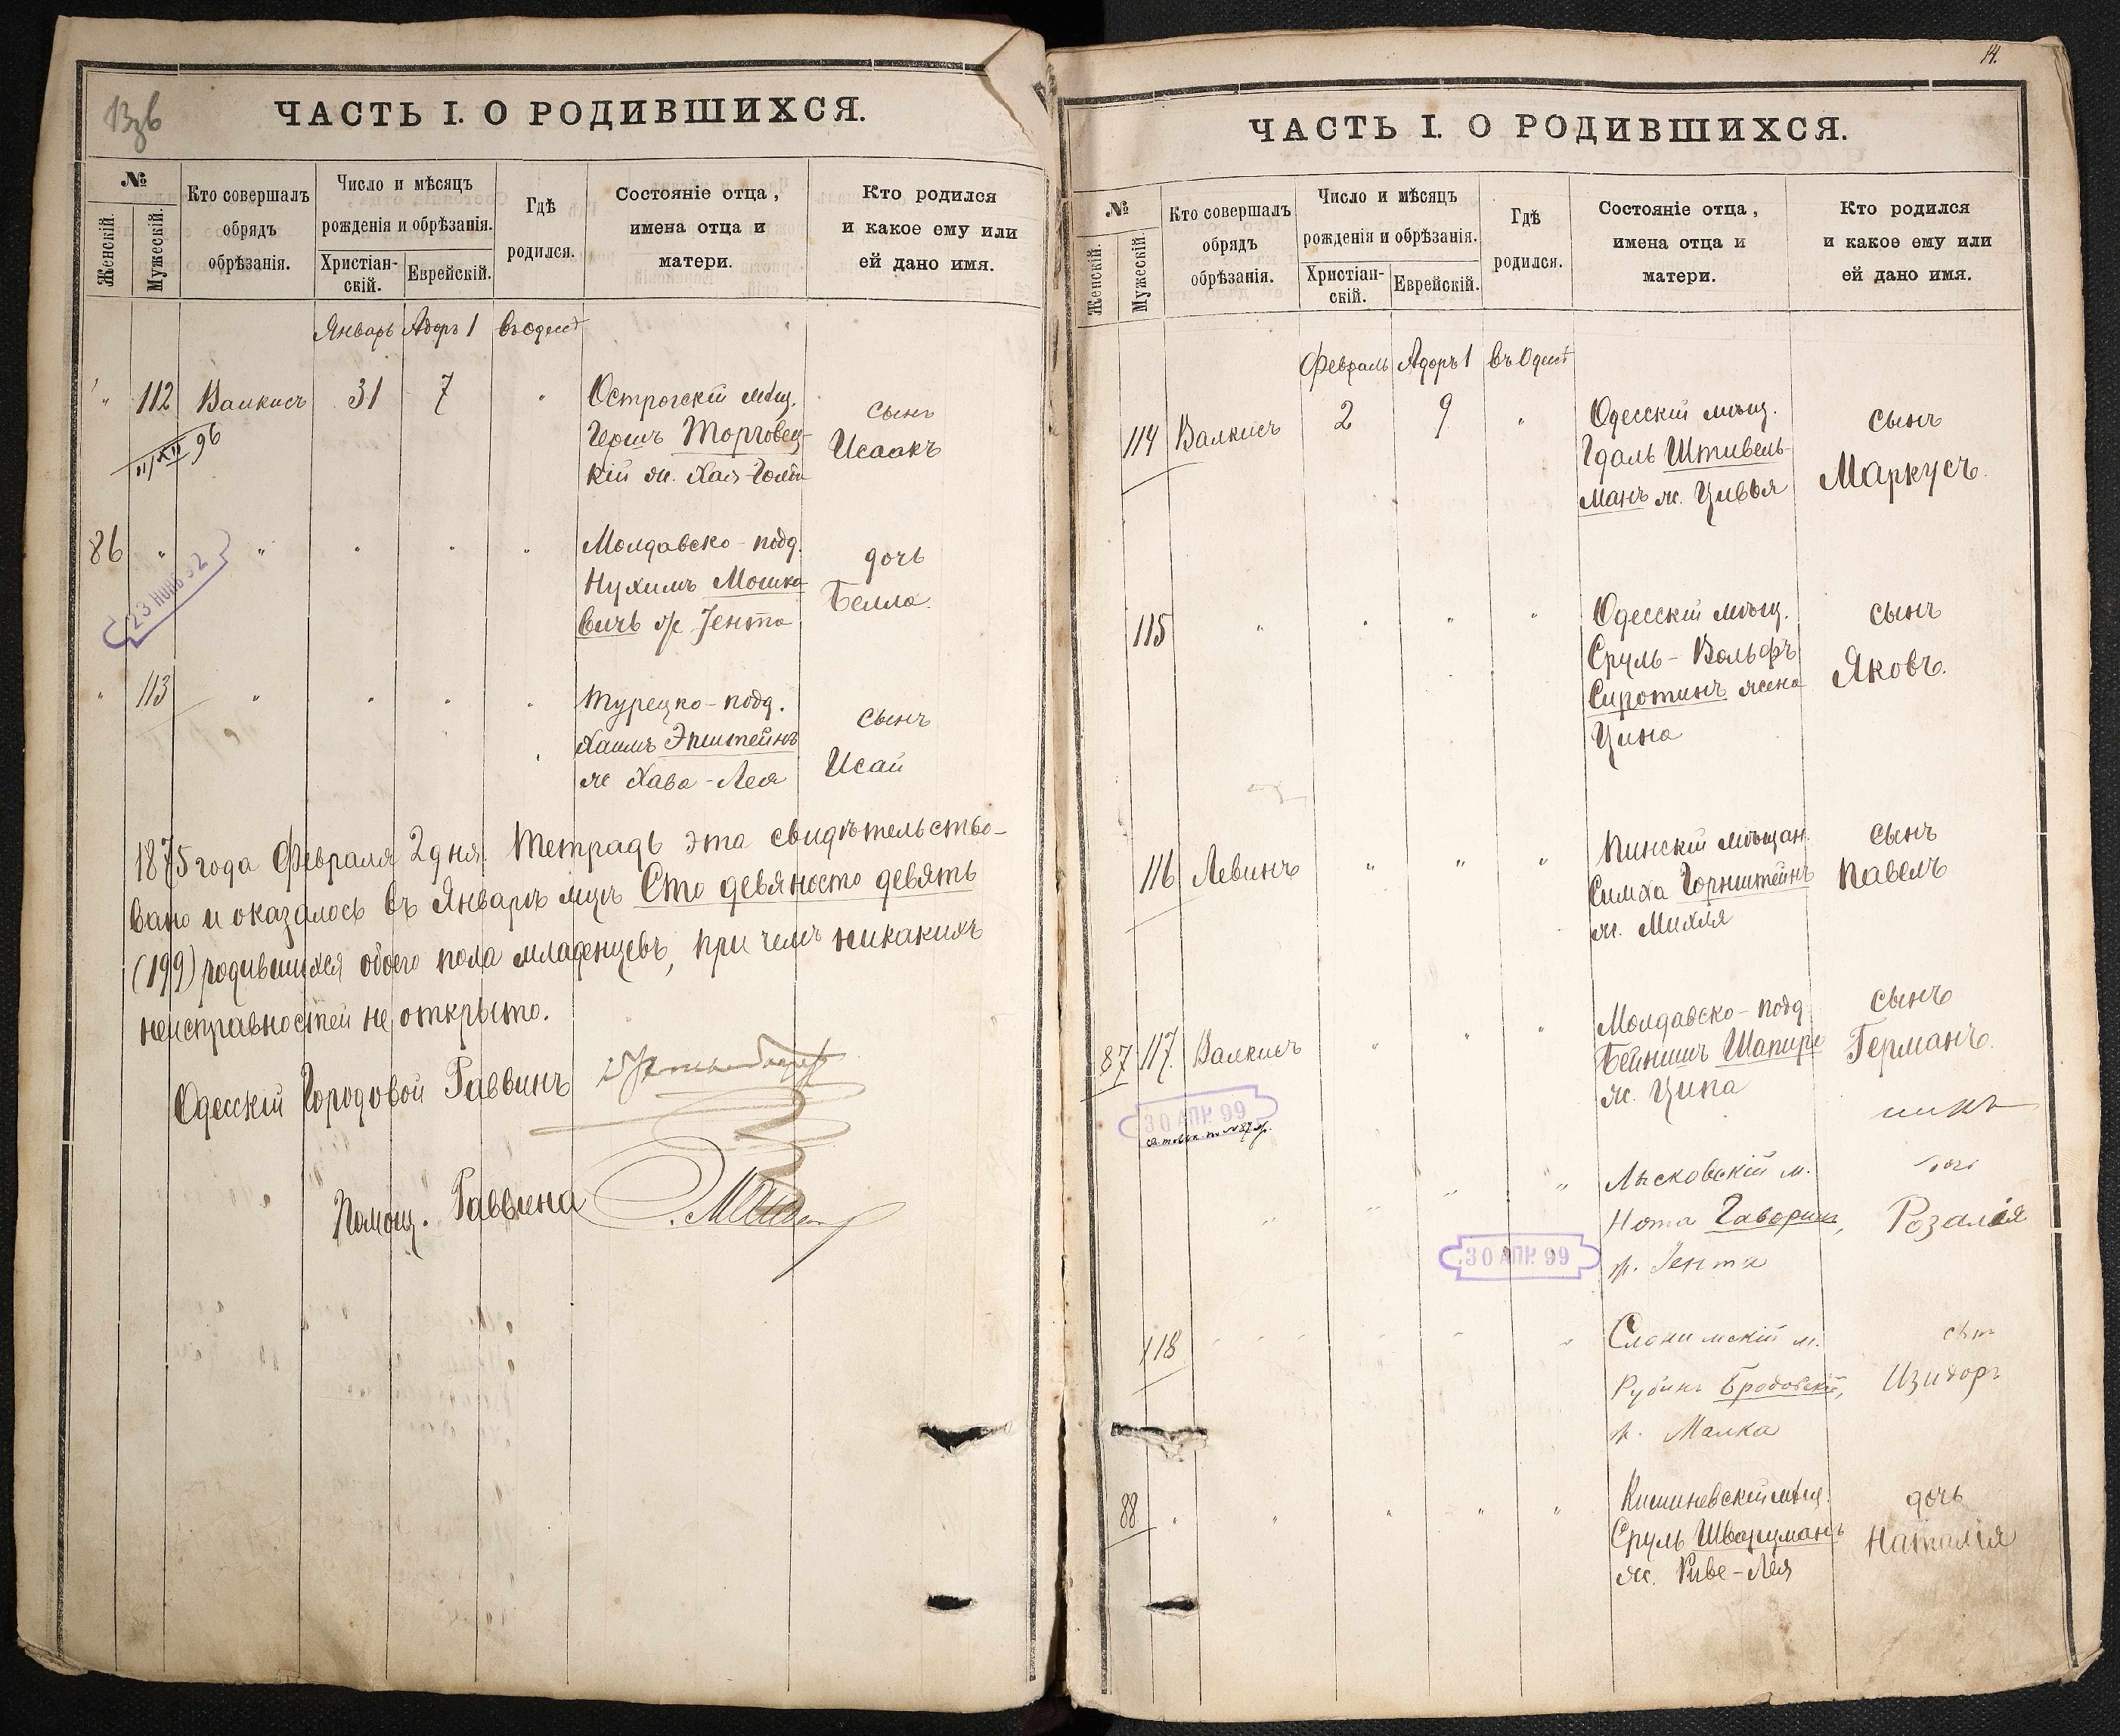 13 зв
ЧАСТЬ I. О РОДИВШИХСЯ.
№
Женскій.
Мужескій.
Кто совершалъ
обрядъ
обрѣзанія.
Число и мѣсяцъ
рожденія и обрѣзанія.
Христіан-
скій.
Еврейскій.
Гдѣ
родился.
Состояніе отца,
имена отца и
матери.
Кто родился
и какое ему или
ей дано имя.
Январь Адоръ 1 въ Одессѣ
" 112 Валкисъ 31 7 " Острогскій мѣщ. сынъ
Гершъ Торговец- Исаакъ
кій ж. Хая-
11/XII 96
86 " " " " " Молдавско-подд. дочь
Нухимъ Мошко- Белла.
вичъ ж Јента
23 НОЯБ 92
" 113 " " " " Турецко-подд. сынъ
Хаимъ Эпштейнъ Исай
ж Хава-Лея
1875 года Февраля 2 дня. Тетрадь эта свидѣтельство-
вано и оказалось въ Январѣ мцѣ Сто девяносто девять
(199) родившихся обоего пола младенцевъ, при чемъ никакихъ
неисправностей не открыто.
Одесскій Городовой Раввинъ
Помощ. Раввина
14.
ЧАСТЬ I. О РОДИВШИХСЯ.
№
Женскій.
Мужескій.
Кто совершалъ
обрядъ
обрѣзанія.
Число и мѣсяцъ
рожденія и обрѣзанія.
Христіан-
скій.
Еврейскій.
Гдѣ
родился.
Состояніе отца,
имена отца и
матери.
Кто родился
и какое ему или
ей дано имя.
Февраль Адоръ 1 въ Одессѣ
114 Валкисъ 2 9 " Одесскій мѣщ. сынъ
Гдаль Штивель- Маркусъ.
манъ ж. Цивья
115 " " " " Одесскій мѣщ. сынъ
Сруль-Вольфъ Яковъ.
Сиротинъ жена
Цина
116 Левинъ " " " Пинскій мѣщан. сынъ
Симха Горнштейнъ Павелъ
ж. Михля
87 117. Валкисъ " " " Молдавско-подд сынъ
Бейнишъ Шапиро Германъ.
ж. Ципа
30 АПР. 99
" " " " Лысковскій м. дочь
Нота Гаворинъ, Розалія
ж. Јента
30 АПР. 99
118 " " " " Слонимскій м. сынъ
Рубинъ Бродовскій, Изидоръ
ж. Малка
88 " " " " " Кишиневскій мѣщ. дочь
Сруль Шварцманъ Наталія
ж. Риве-Лея